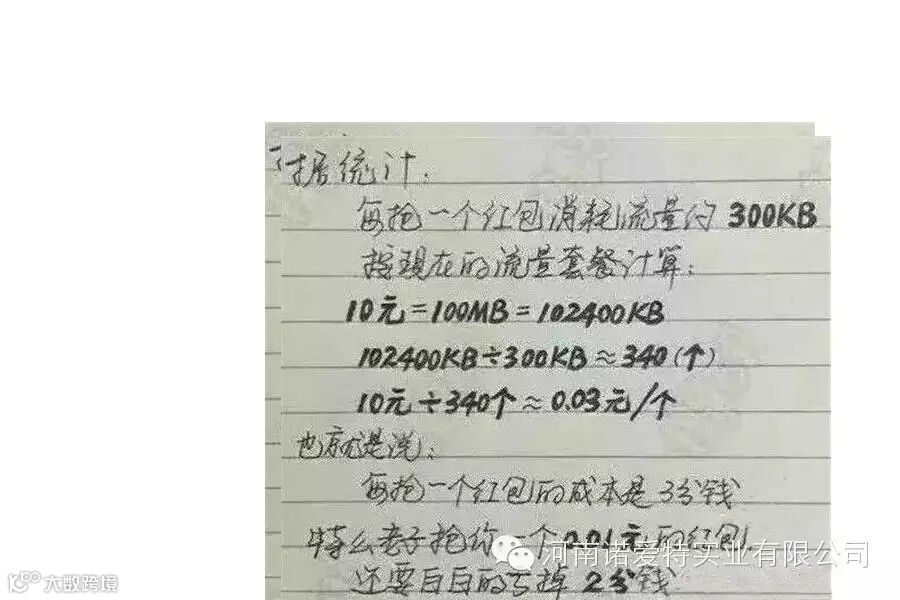 据统计：
每抢一个红包消耗流量约 300KB
按现在的流量套餐计算：
10元=100MB=102400KB
102400KB÷300KB≈340(个)
10元÷340个≈0.03元/个
也就是说：
每抢一个红包的成本是3分钱
特么老子抢你一个0.01元的红包
还要白白的亏掉2分钱
河南诺爱特实业有限公司
大数跨境